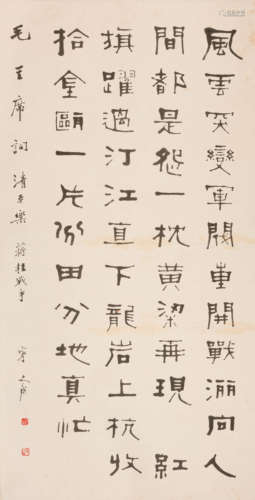 風雲突變軍閥重開戰灑向人
間都是怨一枕黃粱再現紅
旗躍過汀江直下龍岩上杭收
拾金甌一片分田分地真忙
毛主席詞清平樂 蔣桂戰爭